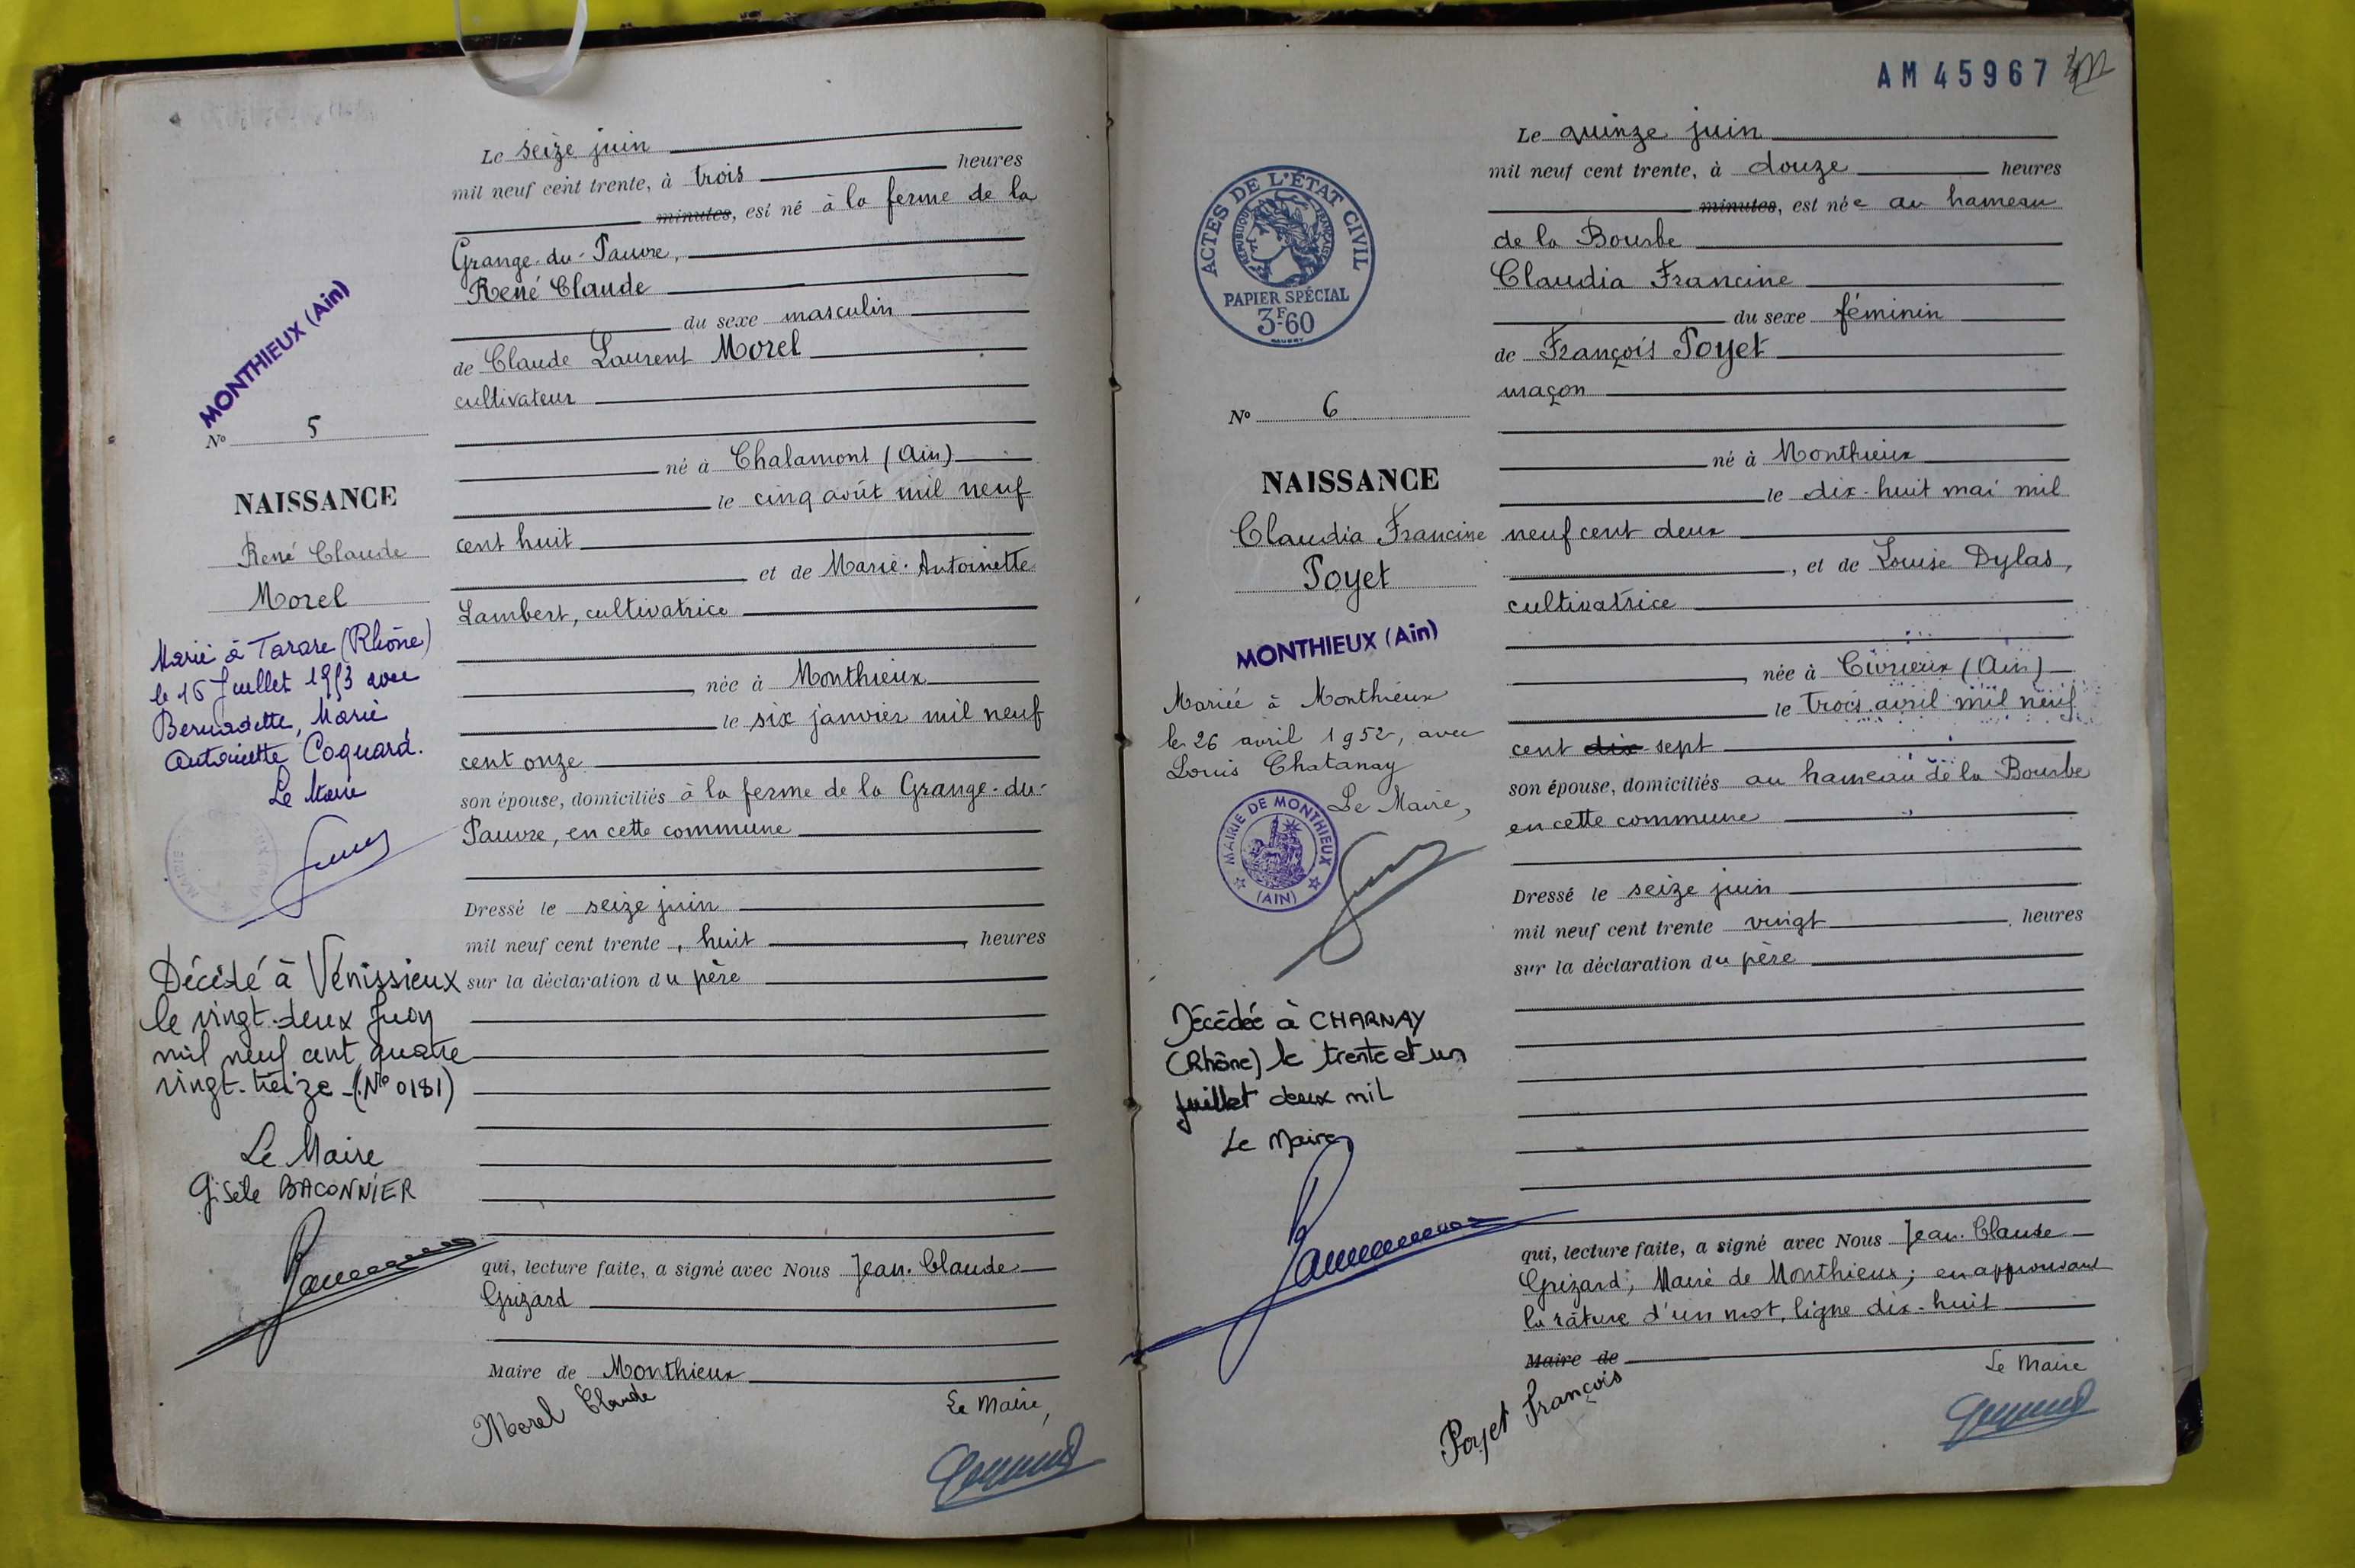 MONTHIEUX (Ain)
N° 5
NAISSANCE
René Claude
Morel
Marié à Tarare (Rhône)
le 16 Juillet 1953 avec
Bernadette, Marie
Antoinette Coquard.
Le Maire
Décédé à Vénissieux
le vingt-deux Juin
mil neuf cent quatre
vingt-treize (N° 0181)
Le Maire
Gisèle BACONNIER
Le seize juin
mil neuf cent trente, à trois heures
minutes, est né à la ferme de la
Grange-du-Pauvre,
René Claude
du sexe masculin
de Claude Laurent Morel
cultivateur
né à Chalamont (Ain)
le cinq août mil neuf
cent huit
et de Marie-Antoinette
Lambert, cultivatrice
née à Monthieux
le six janvier mil neuf
cent onze
son épouse, domiciliés à la ferme de la Grange-du-
Pauvre, en cette commune
Dressé le seize juin
mil neuf cent trente, huit heures
sur la déclaration du père
qui, lecture faite, a signé avec Nous Jean-Claude
Grizard
Maire de Monthieux
Morel Claude
Le Maire,
AM 45967
ACTES DE L'ÉTAT CIVIL
RÉPUBLIQUE FRANÇAISE
PAPIER SPÉCIAL
3F60
N° 6
NAISSANCE
Claudia Francine
Poyet
MONTHIEUX (Ain)
Mariée à Monthieux
le 26 avril 1952, avec
Louis Chatanay
Le Maire,
MAIRIE DE MONTHIEUX
(AIN)
Décédée à CHARNAY
(Rhône) le trente et un
juillet deux mil
Le Maire
Le quinze juin
mil neuf cent trente, à douze heures
minutes, est née au hameau
de la Bourbe
Claudia Francine
du sexe féminin
de François Poyet
maçon
né à Monthieux
le dix-huit mai mil
neuf cent deux
, et de Louise Dylas,
cultivatrice
née à Civrieux (Ain)
le trois avril mil neuf
cent dix-sept
son épouse, domiciliés au hameau de la Bourbe
en cette commune
Dressé le seize juin
mil neuf cent trente vingt heures
sur la déclaration du père
qui, lecture faite, a signé avec Nous Jean-Claude
Grizard, Maire de Monthieux; en approuvant
la rature d'un mot, ligne dix-huit
Maire de
Le Maire
Poyet François